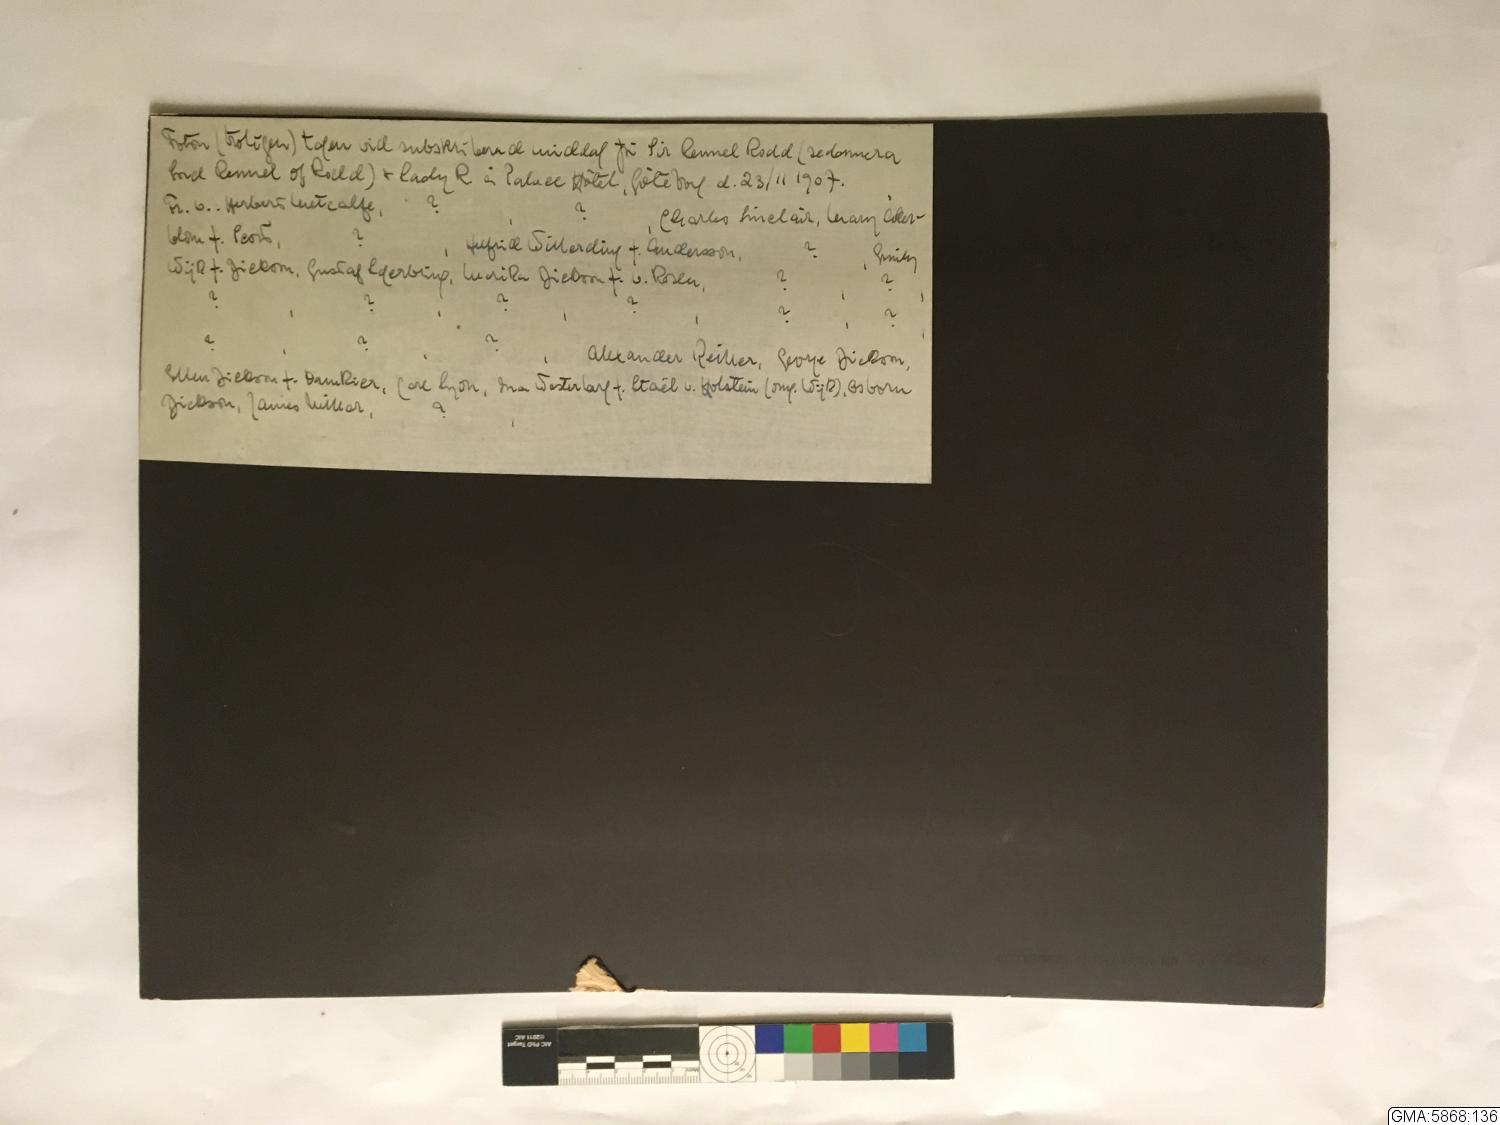 Foton (troligen) tagen vid subskriberad middag för Sir Rennel Rodd (sedermera
Lord Rennel of Rodd) & Lady R å Palace Hôtel, Göteborg d. 23/11 1907.
Fr. v.. Herbert Metcalfe, ? , ? , Charles Sinclair, Mary Åker-
blom f. , ? , Helfrid Willerding f. Andersson, ? , Emily
Wijk f. Dickson, Gustaf Ekerbring, Marika Dickson f. v. Rosen, ? , ? ,
? , ? , ? , ? , ? , ? ,
? , ? , ? , Alexander Keiller, George Dickson,
Ellen Dickson f. , Carl Lyon, Ina Westerberg f. Staël v. Holstein (omg. Wijk), Osborn
Dickson, James Millar, ? ,
AIC PhD Target
©2011 AIC
GMA:5868:136